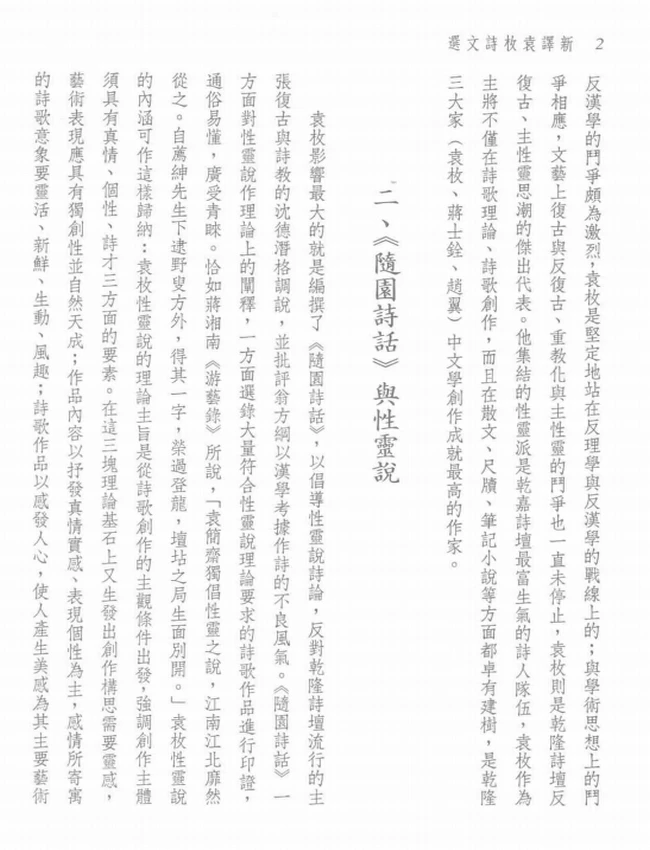 新譯袁枚詩文選 2
反漢學的鬥爭頗為激烈，袁枚是堅定地站在反理學與反漢學的戰線上的；與學術思想上的鬥
爭相應，文藝上復古與反復古、重教化與主性靈的鬥爭也一直未停止，袁枚則是乾隆詩壇反
復古、主性靈思潮的傑出代表。他集結的性靈派是乾嘉詩壇最富生氣的詩人隊伍，袁枚作為
主將不僅在詩歌理論、詩歌創作，而且在散文、尺牘、筆記小說等方面都卓有建樹，是乾隆
三大家（袁枚、蔣士銓、趙翼）中文學創作成就最高的作家。
二、《隨園詩話》與性靈說
袁枚影響最大的就是編撰了《隨園詩話》，以倡導性靈說詩論，反對乾隆詩壇流行的主
張復古與詩教的沈德潛格調說，並批評翁方綱以漢學考據作詩的不良風氣。《隨園詩話》一
方面對性靈說作理論上的闡釋，一方面選錄大量符合性靈說理論要求的詩歌作品進行印證，
通俗易懂，廣受青睞。恰如蔣湘南《游藝錄》所說，「袁簡齋獨倡性靈之說，江南江北靡然
從之。自薦紳先生下逮野叟方外，得其一字，榮過登龍，壇坫之局生面別開。」袁枚性靈說
的內涵可作這樣歸納：袁枚性靈說的理論主旨是從詩歌創作的主觀條件出發，強調創作主體
須具有真情、個性、詩才三方面的要素。在這三塊理論基石上又生發出創作構思需要靈感，
藝術表現應具有獨創性並自然天成；作品內容以抒發真情實感、表現個性為主，感情所寄寓
的詩歌意象要靈活、新鮮、生動、風趣；詩歌作品以感發人心，使人產生美感為其主要藝術